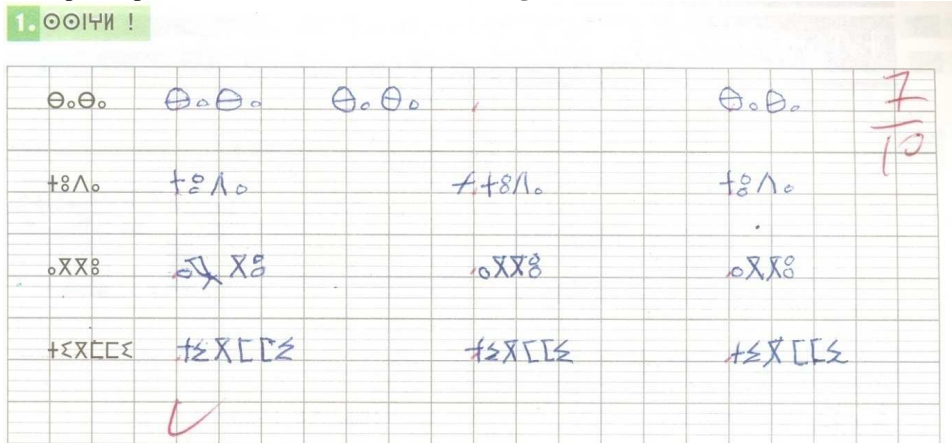 1. ⵙⵙⵏⵖⵍ !
ⴱⴰⴱⴰ ⴱⴰⴱⴰ ⴱⴰⴱⴰ ⴱⴰⴱⴰ 7/10
ⵜⵓⴷⴰ ⵜⵓⴷⴰ ⵜⵓⴷⴰ ⵜⵓⴷⴰ
ⴰⴳⴳⵓ ⴰⴳⴳⵓ ⴰⴳⴳⵓ ⴰⴳⴳⵓ
ⵜⵉⴳⵎⵎⵉ ⵜⵉⴳⵎⵎⵉ ⵜⵉⴳⵎⵎⵉ ⵜⵉⴳⵎⵎⵉ